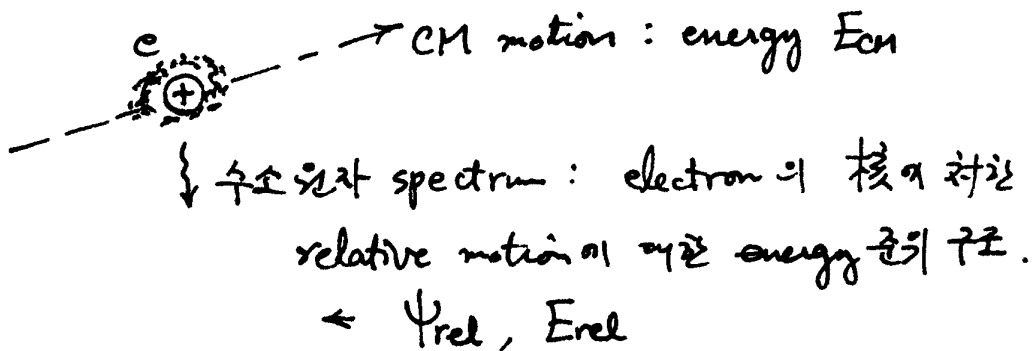 e
+
CM motion : energy E_CM
수소원자 spectrum : electron의 核에 대한
relative motion에 대한 energy 준위 구조.
← Ψrel, Erel